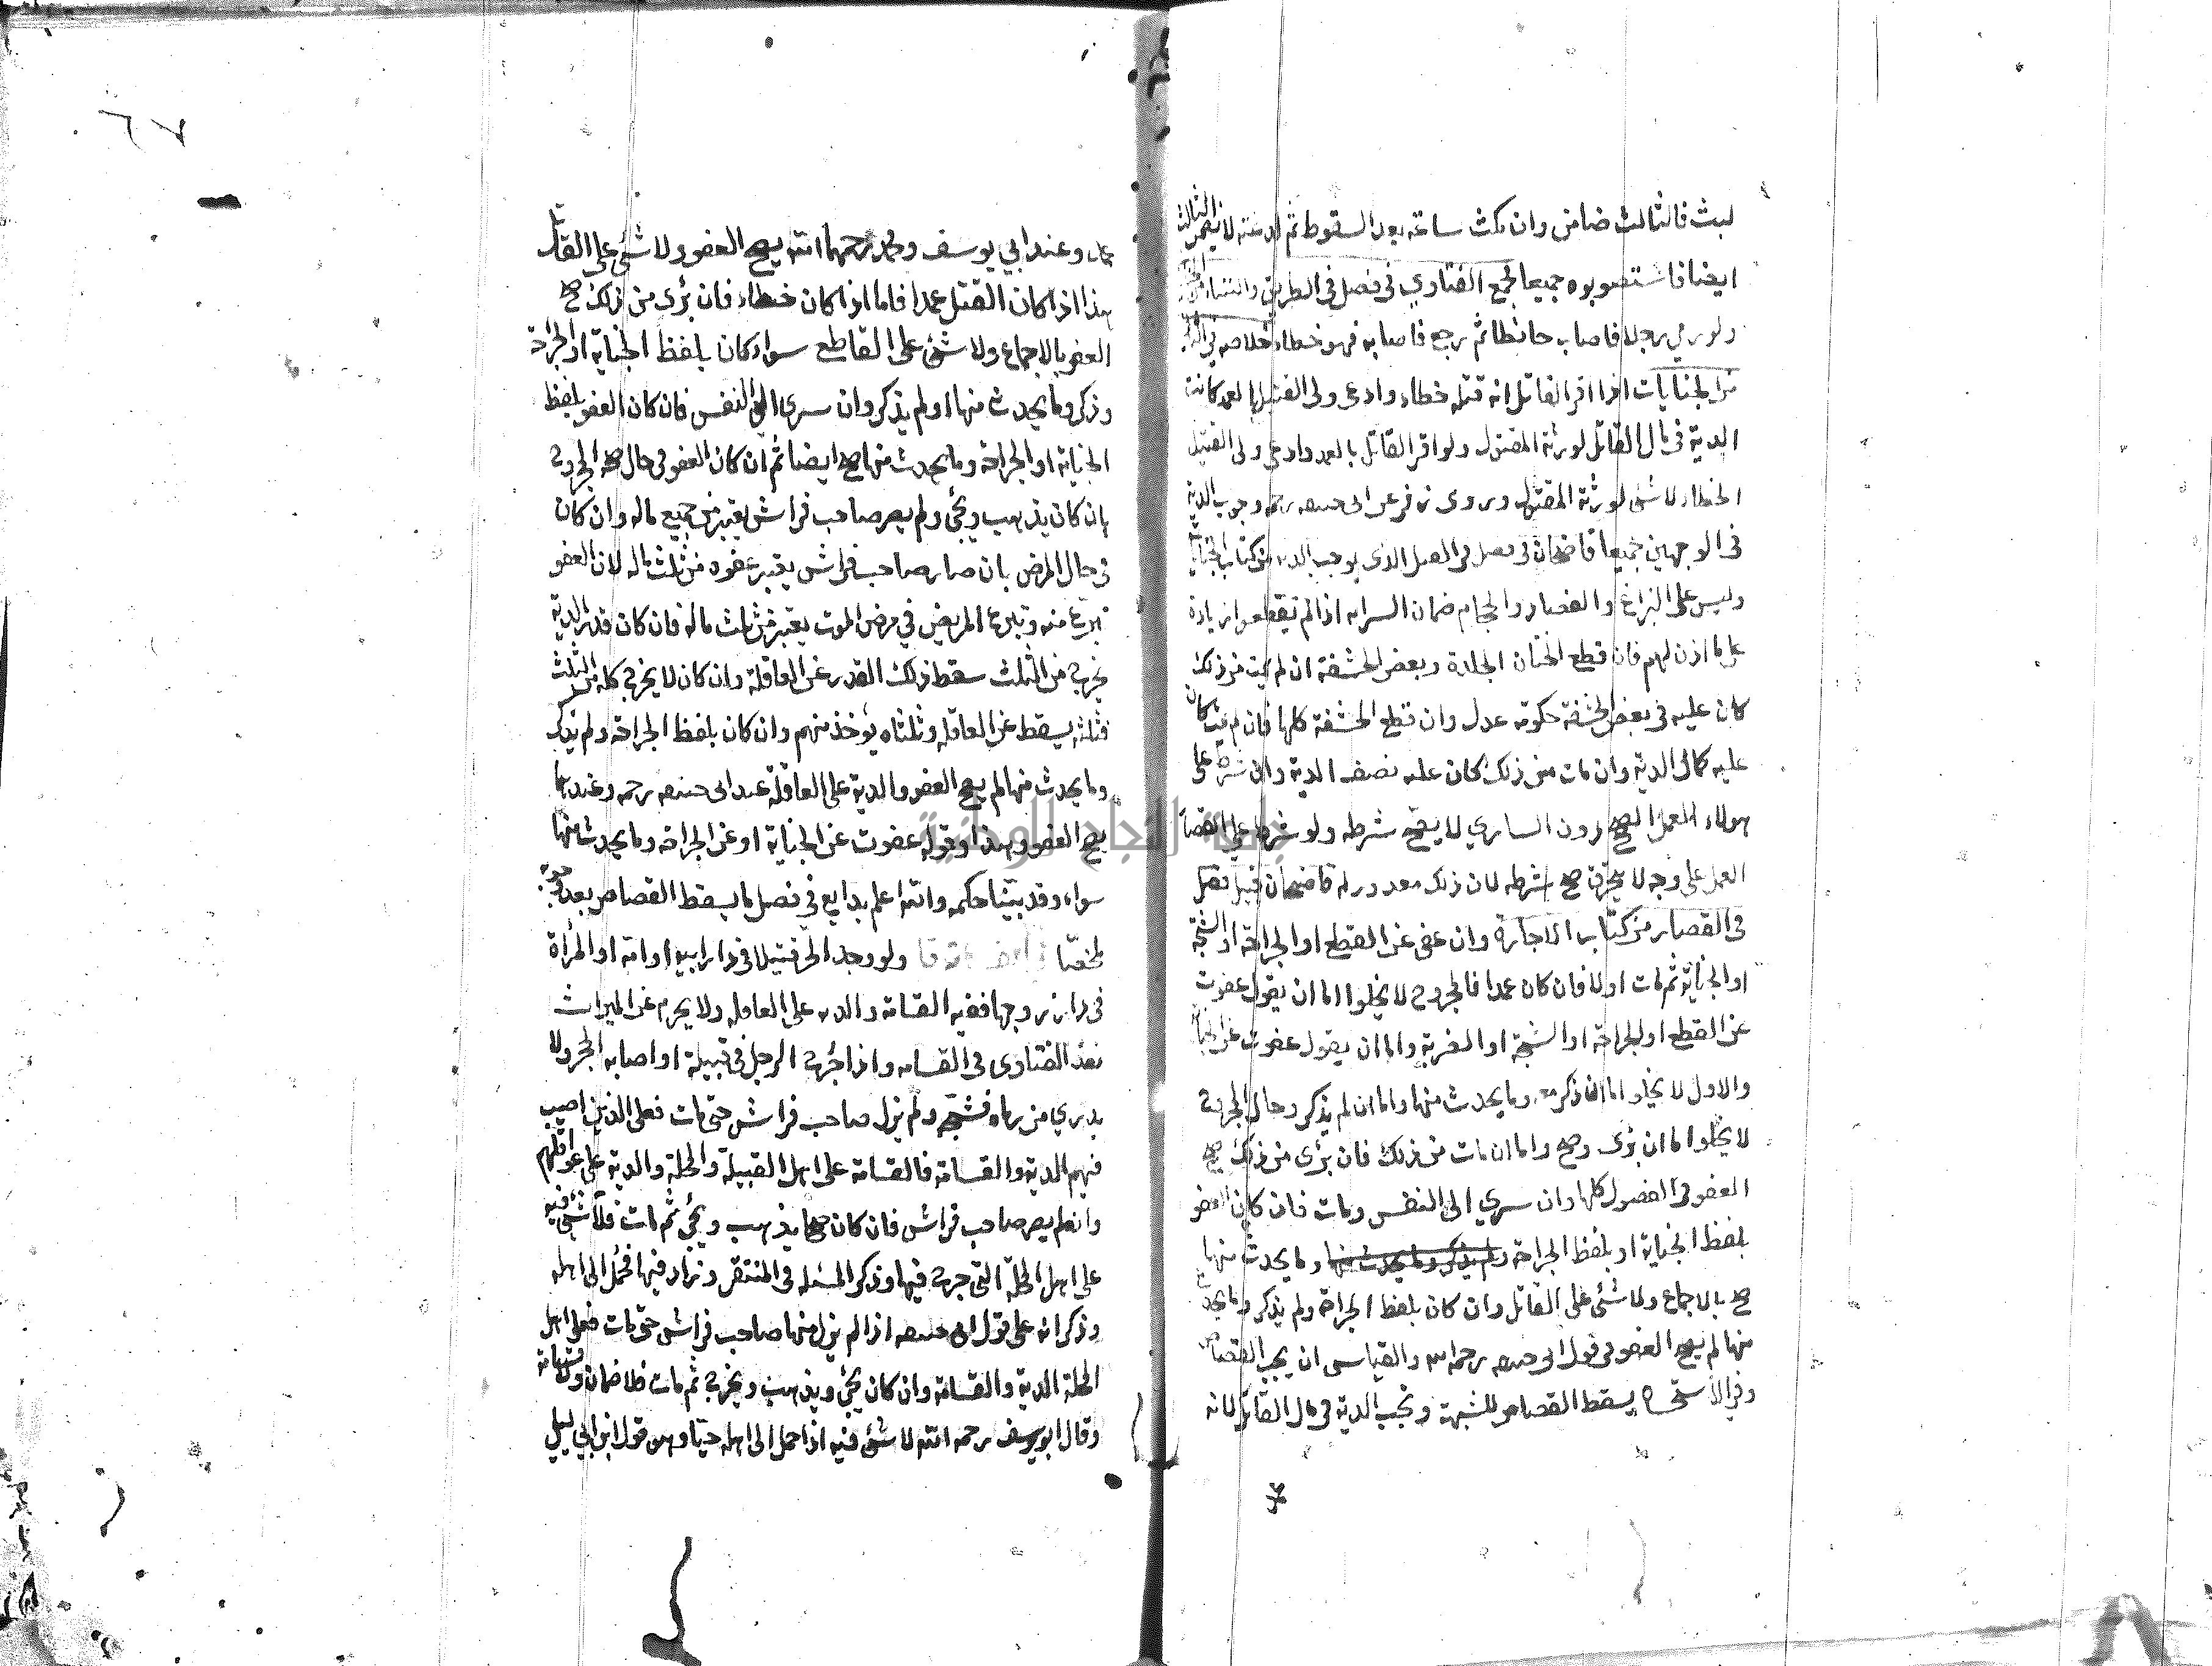 لبث فالثالث ضامن وان مكث ساعة بعد السقوط ثم لا يضمن الثالث
ايضا فاستصوبوه جميعا مجمع الفتاوي في فصل في الطريق
ولو رمى رجلا فاصاب حائطا ثم رجع فاصابه فهو خطاء خلاصه في
من الجنايات اذا اقر القاتل انه قتله خطاء وادعى ولى القتيل العمد كانت
الدية في مال القاتل لورثة المقتول ولو اقر القاتل بالعمد وادعى ولى القتيل
الخطاء لا شئ لورثة المقتول وروى زفر عن ابى حنيفه رحمه وجوب الدية
في الوجهين جميعا قاضيخان في فصل في القتل الذى يوجب الديه من كتاب الجنايات
وليس على البزاغ والفصاد والحجام ضمان السرايه اذا لم يقطعوا زيادة
على ما اذن لهم فان قطع الختان الجلدة وبعض الحشفة ان لم يمت من ذلك
كان عليه في بعض الحشفة حكومة عدل وان قطع الحشفة كلها فان لم يمت كان
عليه كمال الدية وان مات من ذلك كان عليه نصف الدية وان شرط على
هولاء العمل الصحيح دون الساري لا يصح شرطه ولو شرط على القصار
العمل على وجه لا يتخرق صح شرطه لان ذلك مقدور له قاضيخان قبيل فصل
في القصار من كتاب الاجارة وان عفى عن القطع او الجراحة او الشجة
او الجناية ثم مات اولا فان كان عمدا فالمجروح لا يخلوا اما ان يقول عفوت
عن القطع او الجراحة او الشجة او الضربة واما ان يقول عفوت عن الجناية
والاول لا يخلو اما ان ذكر معه وما يحدث منها واما ان لم يذكر وحال المجروح
لا يخلوا اما ان برى وصح واما ان مات من ذلك فان برئ من ذلك صح
العفو في الفصول كلها وان سري الى النفس ومات فان كان العفو
بلفظ الجناية او بلفظ الجراحة وما يحدث منها
صح بالاجماع ولا شئ على القاتل وان كان بلفظ الجراحة ولم يذكر وما يحدث
منها لم يصح العفو في قول ابى حنيفه رحمه الله والقياس ان يجب القصاص
وفي الاستحسان يسقط القصاص للشبهة وتجب الدية في مال القاتل لانه
٦٧
عمد وعند ابي يوسف ومحمد رحمهما الله يصح العفو ولا شئ على القاتل
هذا اذا كان القتل عمدا فاما اذا كان خطاء فان برئ من ذلك صح
العفو بالاجماع ولا شئ على القاطع سواء كان بلفظ الجناية او الجراحة
وذكر وما يحدث منها او لم يذكر وان سرى الى النفس فان كان العفو بلفظ
الجناية او الجراحة وما يحدث منها صح ايضا ثم ان كان العفو في حال صحة المجروح
بان كان يذهب ويجئ ولم يصر صاحب فراش يعتبر من جميع ماله وان كان
في حال المرض بان صار صاحب فراش يعتبر عفوه من ثلث ماله لان العفو
تبرع منه وتبرع المريض في مرض الموت يعتبر من ثلث ماله فان كان قدر الدية
يخرج من الثلث سقط ذلك القدر عن العاقلة وان كان لا يخرج كله من الثلث
فثلثه يسقط عن العاقله وثلثاه يوخذ منهم وان كان بلفظ الجراحة ولم يذكر
وما يحدث منها لم يصح العفو والدية على العاقلة عند ابى حنيفه رحمه وعندهما
يصح العفو وهذا وقوله عفوت عن الجناية او عن الجراحة وما يحدث منها
سواء وقد بينا حكمه والله اعلم بدايع في فصل ما يسقط القصاص بعد وجوبه
ملخصا ولو وجد الحر قتيلا في دار ابيه او امه او المرأة
في دار زوجها ففيه القسامة والديه على العاقله ولا يحرم عن الميراث
نقد الفتاوى في القسامه واذا جرح الرجل في قبيلة او اصابه الحجر ولا
يدري من رماه فشجه ولم يزل صاحب فراش حتى مات فعلى الذين اصيب
فيهم الدية والقسامة فالقسامة على اهل القبيلة والمحلة والدية على عواقلهم
وان لم يصر صاحب فراش فان كان صحيحا يذهب ويجئ ثم مات فلا شئ فيه
على اهل المحلة التى جرح فيها وذكر المسئله في المنتقى وزاد فيها فحمل الى اهله
وذكر انه على قول ابى حنيفه اذا لم يزل منها صاحب فراش حتى مات فعلى اهل
المحلة الدية والقسامة وان كان يجئ ويذهب ويخرج ثم مات فلا ضمان ولا قسامة
وقال ابو يوسف رحمه الله لا شئ فيه اذا حمل الى اهله حيا وهو قول ابن ابي ليلى
جامعة النجاح الوطنية